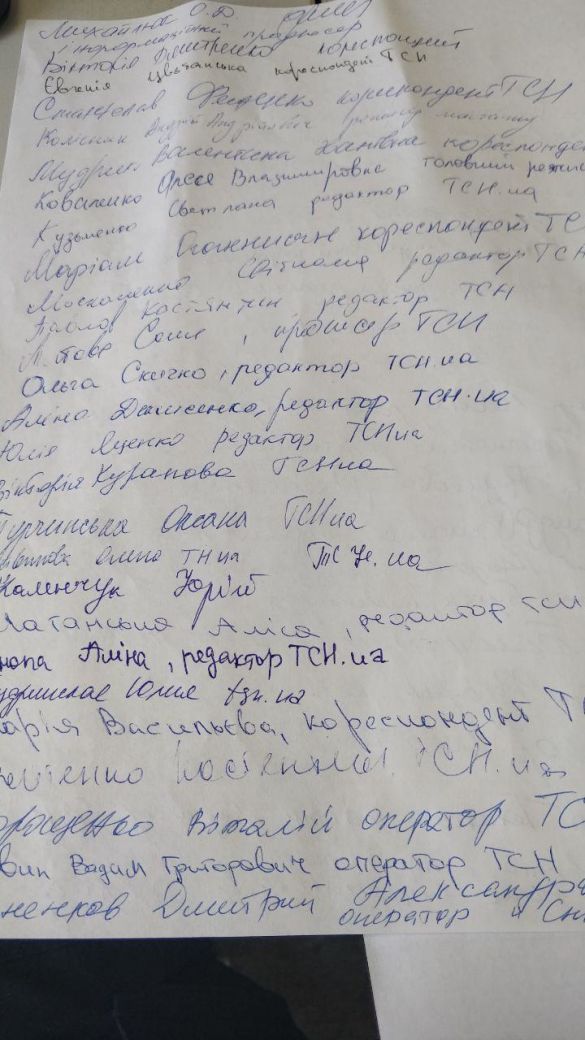 Михайлюк О.В.
інформаційний продюсер
Вікторія Дмитренко кореспондент
Євгенія Цвєтанська кореспондент ТСН
Станіслав Феденко кореспондент ТСН
Колісник Андрій Андрійович монтажу
Мудрик Валентина кореспонде
Коваленко Олеся Владимировна головний режис
Кузьменко Светлана редактор ТСН.ua
Маріам Оганнисян кореспондент ТС
Москаленко Світлана редактор ТСН
Павлов Костянтин редактор ТСН
Соня, продюсер ТСН
Ольга Скичко, редактор ТСН.ua
Аліна Денисенко, редактор ТСН.ua
Юлія Яценко редактор ТСН ua
Вікторія Куранова ТСН ua
Турчинська Оксана ТСН ua
ТСН.ua
Каленчук Юрій
Латанська Аліса, редактор ТСН
нопа Аліна, редактор ТСН.ua
Юлия tsn.ua
арія Васильєва, кореспондент Т
ТСН.ua
орощенко Віталій оператор ТС
вин Вадим Григорович оператор ТСН
ненков Дмитрий Александро
оператор ТСН